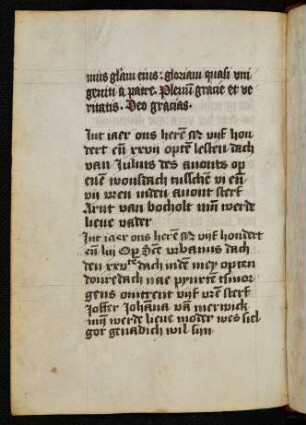 mus glam eius: gloriam quasi vni
geniti a patre. Plenū gracie et ve
ritatis. Deo gracias.
Int iaer ons herē vijf hon
dert eñ xxvij opten lesten dach
van Julius des auonts op
enē wonsdach tusschē vi eñ
vij vren inden auont sterf
Arnt van bocholt mijn werde
lieue vader
Int iaer ons herē vijf hondert
eñ lij Op Sēt vrbanus dach
den xxvtē dach indē mey opten
donredach nae pynxtē tsmor
gens omtrent vijf vrē sterf
Joffer Johāna vā merwick
mijn werde lieue moder wes siel
got genadich wil sijn